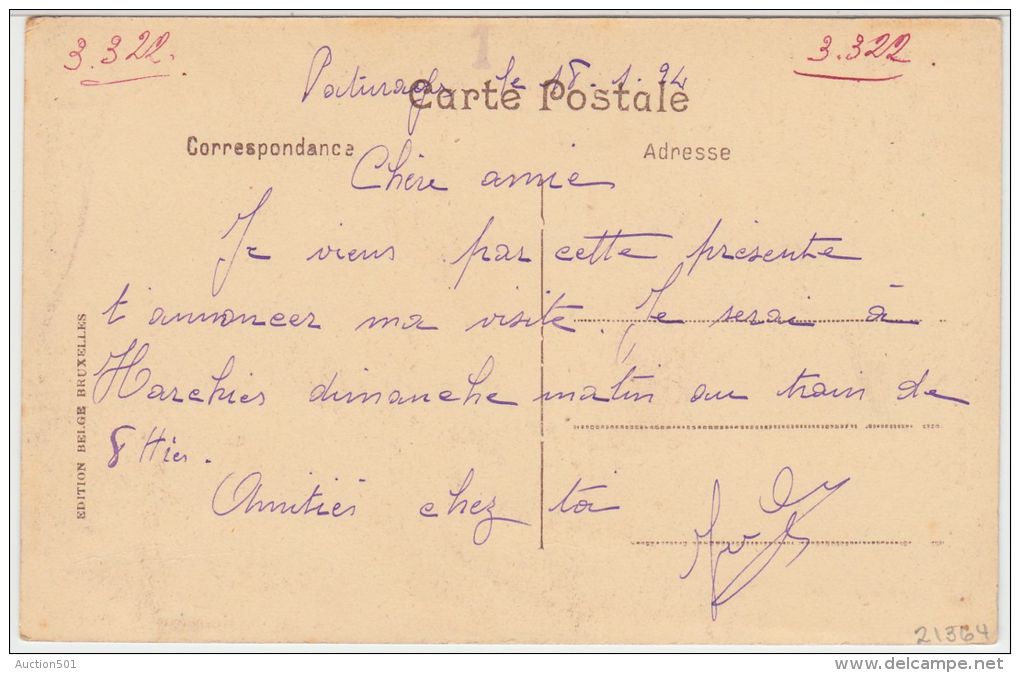 1
3.322. 3.322.
Paturages le 18.1.24
Carte Postale
Correspondance Adresse
Chère amie
Je viens par cette présente
t'annoncer ma visite. Je serai à
Harchies dimanche matin au train de
8 Hres.
Amitiés chez toi
EDITION BELGE BRUXELLES
21364
Auction501
www.delcampe.net